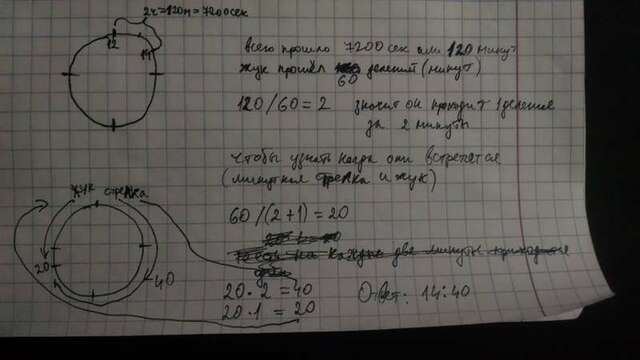 2ч=120м=7200сек
12
14
всего прошло 7200 сек или 120 минут
жук прошёл 60 делений (минут)
120/60=2 значит он проходит 1 деление
за 2 минуты
чтобы узнать когда они встретятся
(минутная стрелка и жук)
60/(2+1)=20
то есть на каждые две минуты приходится
жук стрелка
20
40
20·2=40
20·1=20
Ответ: 14:40